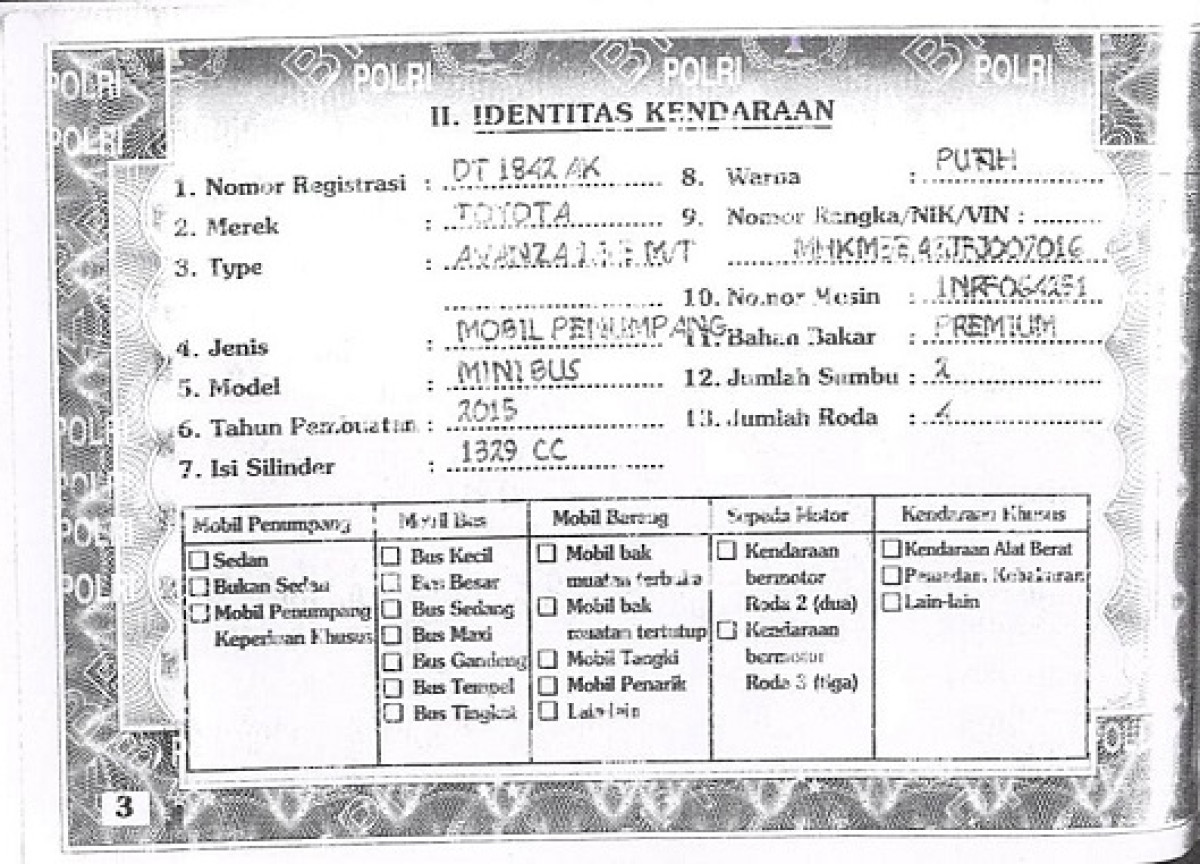 POLRI POLRI POLRI POLRI
POLRI
II. IDENTITAS KENDARAAN
1. Nomor Registrasi : DT 1842 AK
2. Merek : TOYOTA
3. Type : AVANZA M/T
4. Jenis : MOBIL PENUMPANG
5. Model : MINIBUS
6. Tahun Pembuatan : 2015
7. Isi Silinder : 1329 CC
8. Warna : PUTIH
9. Nomor Rangka/NIK/VIN :
10. Nomor Mesin :
11. Bahan Bakar : PREMIUM
12. Jumlah Sumbu : 2
13. Jumlah Roda : 4
Mobil Penumpang
Sedan
Bukan Sedan
Mobil Penumpang
Keperluan Khusus
Mobil Bus
Bus Kecil
Bus Besar
Bus Sedang
Bus Maxi
Bus Gandeng
Bus Tempel
Bus Tingkat
Mobil Barang
Mobil bak
muatan terbuka
Mobil bak
muatan tertutup
Mobil Tangki
Mobil Penarik
Lain-lain
Sepeda Motor
Kendaraan
bermotor
Roda 2 (dua)
Kendaraan
bermotor
Roda 3 (tiga)
Kendaraan Khusus
Kendaraan Alat Berat
Pemadam Kebakaran
Lain-lain
3